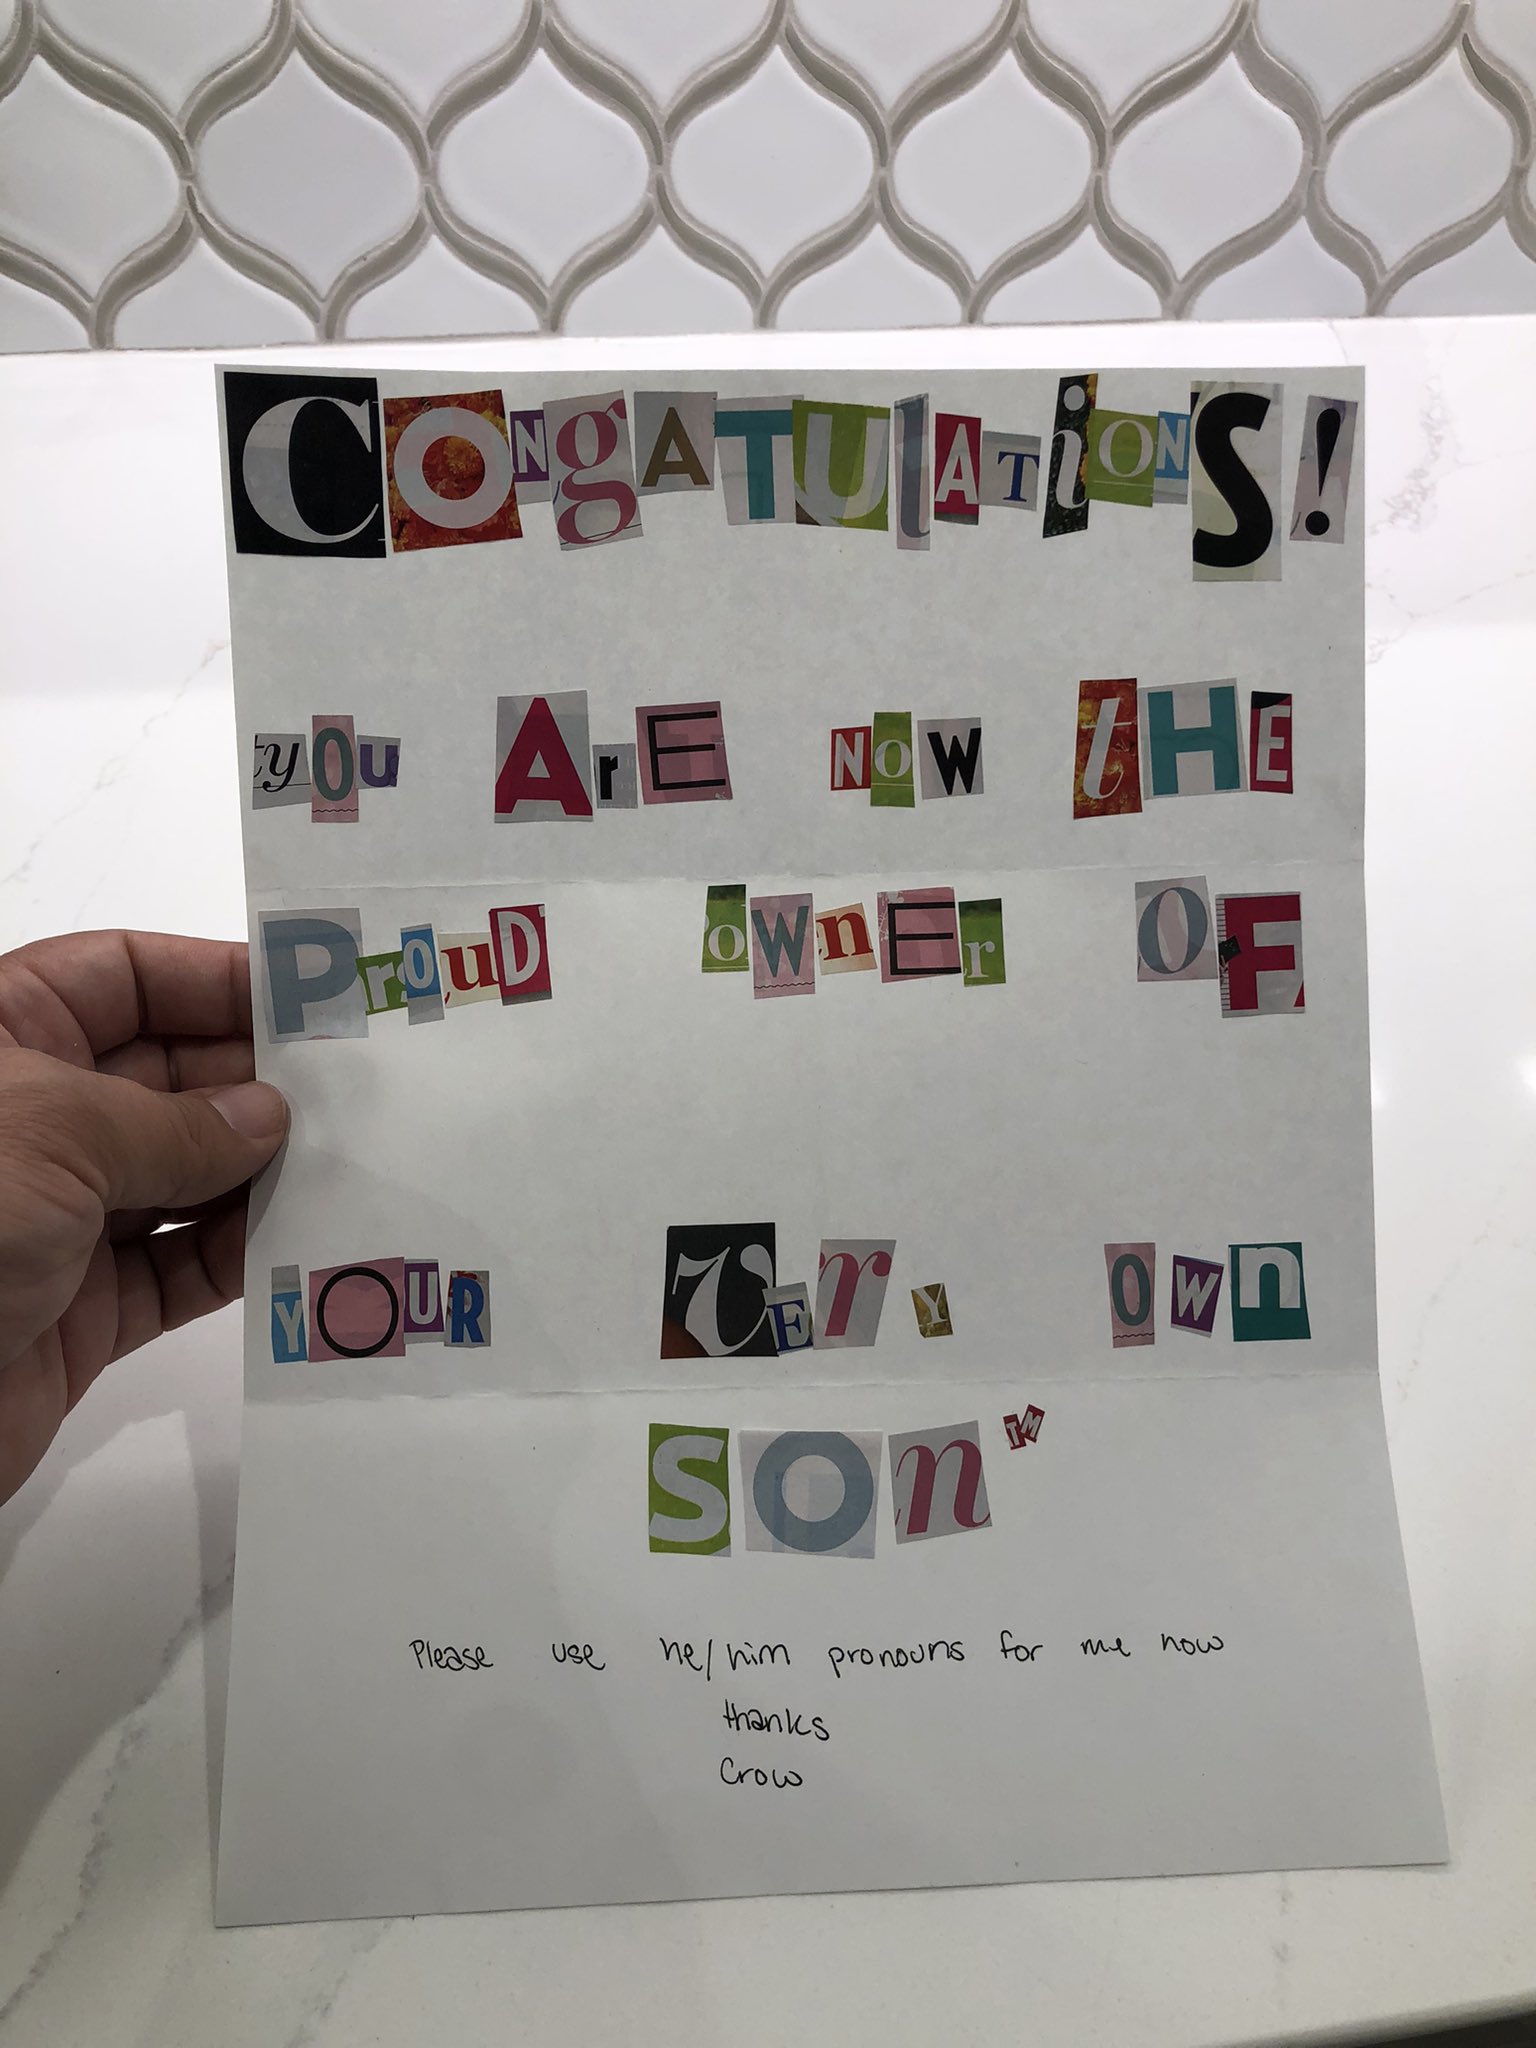 CONgATUlATiONS!
yOU ArE NoW tHE
ProuD oWnEr OF
YOUR VErY OWn
SOnTM
Please use he/him pronouns for me now
thanks
Crow